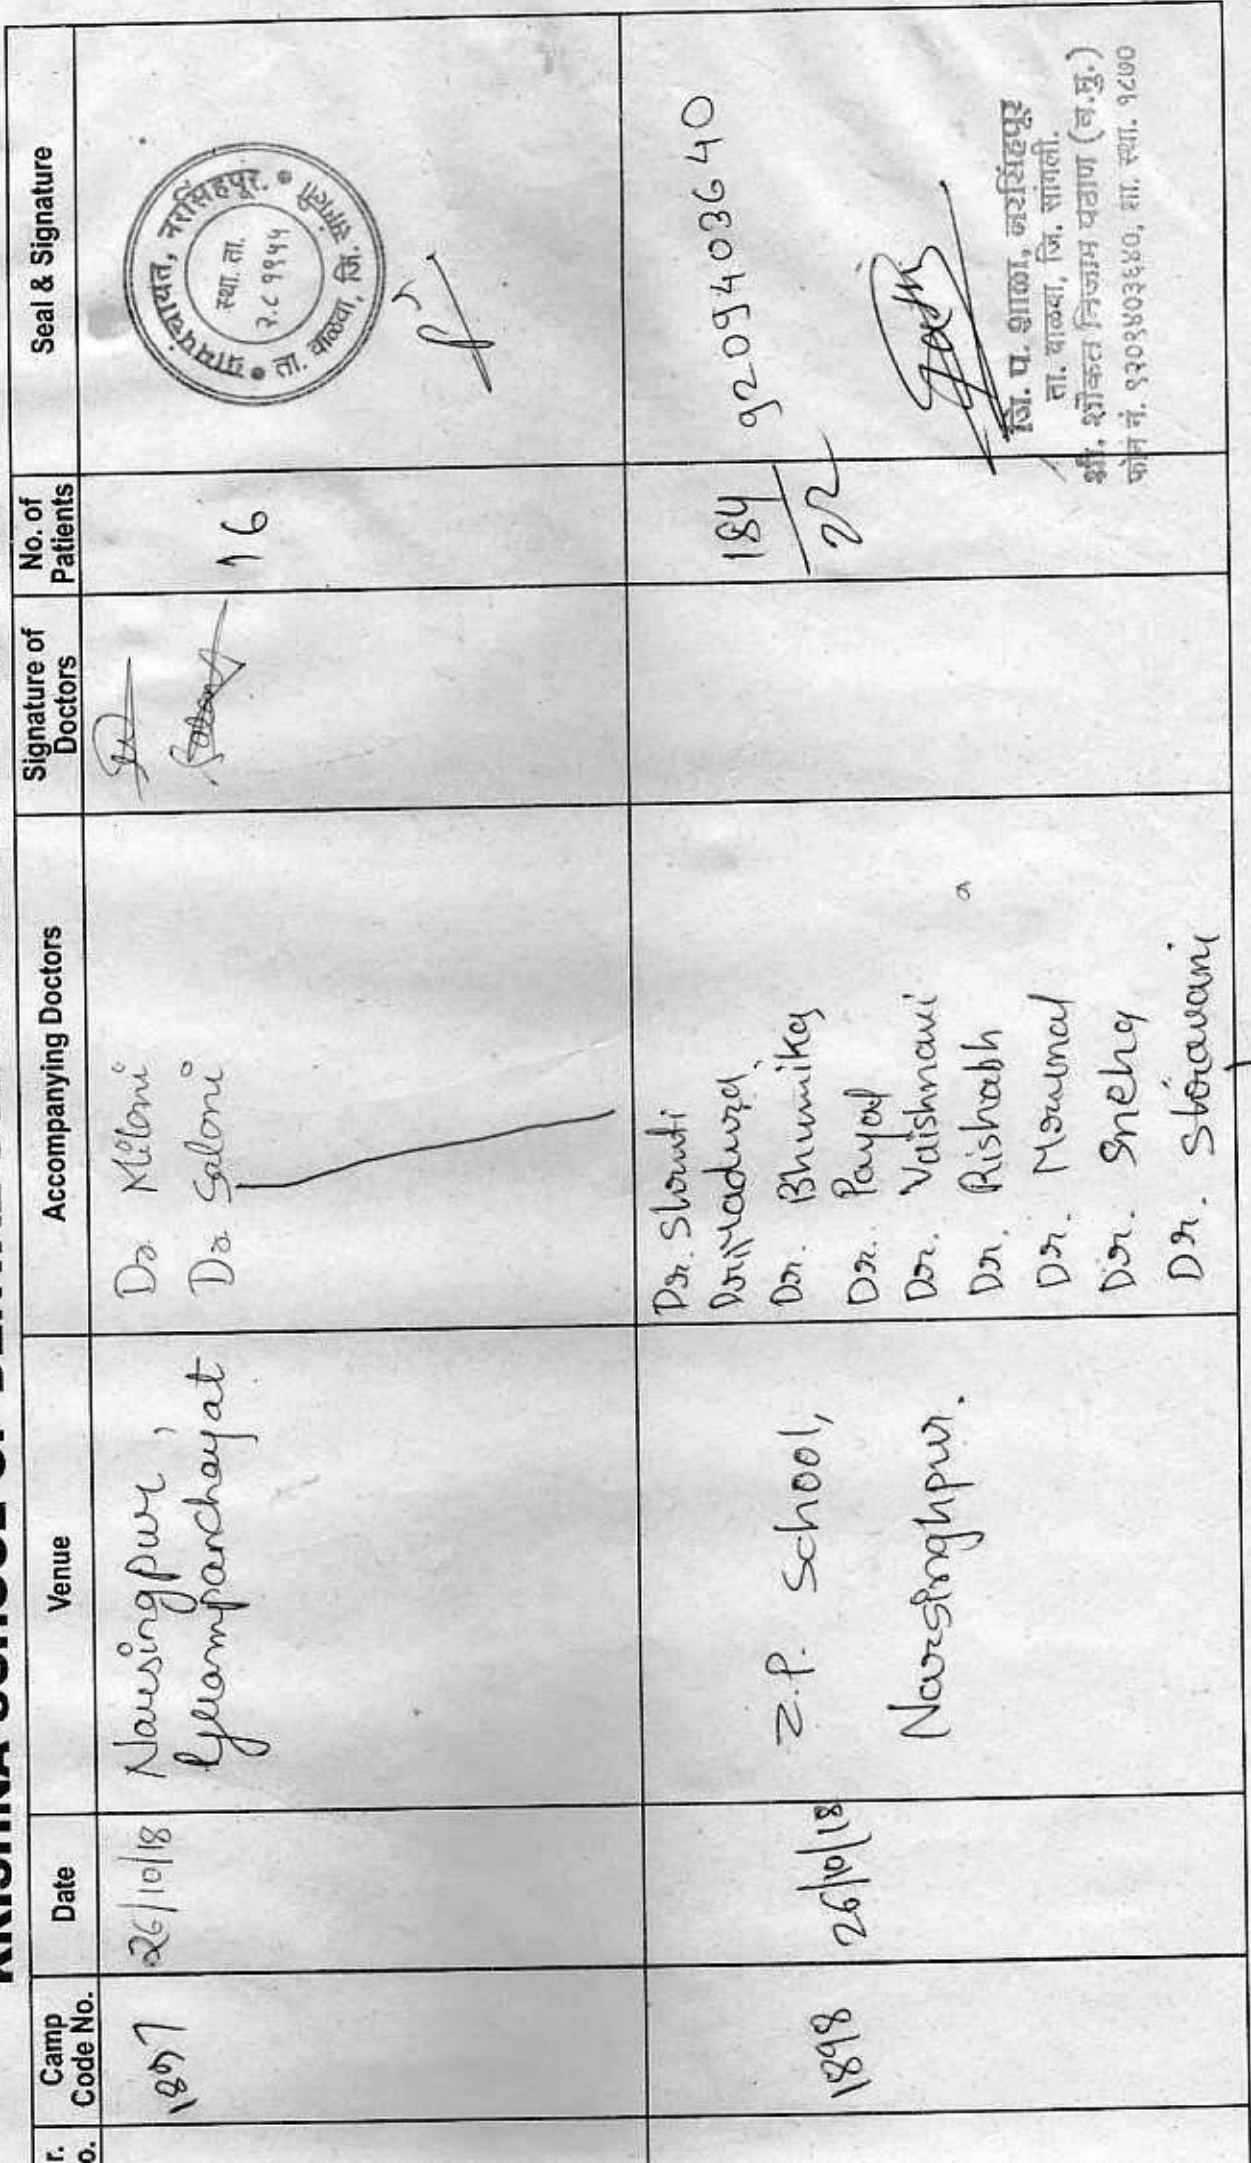 KRISHNA SCHOOL OF DENTAL
r. o.
Camp Code No.
Date
Venue
Accompanying Doctors
Signature of Doctors
No. of Patients
Seal & Signature
1897
26/10/18
Narsingpur,
Grampanchayat
Dr Miloni
Dr Saloni
16
ग्रामपंचायत, नरसिंहपूर.
ता. वाळवा, जि. सांगली
स्था. ता.
२.८ १९५५
1898
26/10/18
Z.P. School,
Narsinghpur.
Dr. Shruti
Dr. Madura
Dr. Bhumika
Dr. Payal
Dr. Vaishnavi
Dr. Rishabh
Dr. Mrunal
Dr. Sneha
Dr. Shravani
184
22
9209403640
जि. प. शाळा, नरसिंहपूर
ता. वाळवा, जि. सांगली.
फोन नं. ९२०९४०३६४०, शा. स्था. १८७०